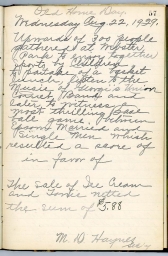 Old Home Day
57
Wednesday Aug. 22, 1929.
Upwards of 300 people
gathered at
Park to
to partake of a basket
lunch, listen to the
Music, of
and
later to witness a
most thrilling Base
Ball game, between
Married and
Single Men which
resulted a score of
in favor of
The sale of Ice Cream
and Tonic netted
the sum of $5.88
M. D. Haynes
Sec.